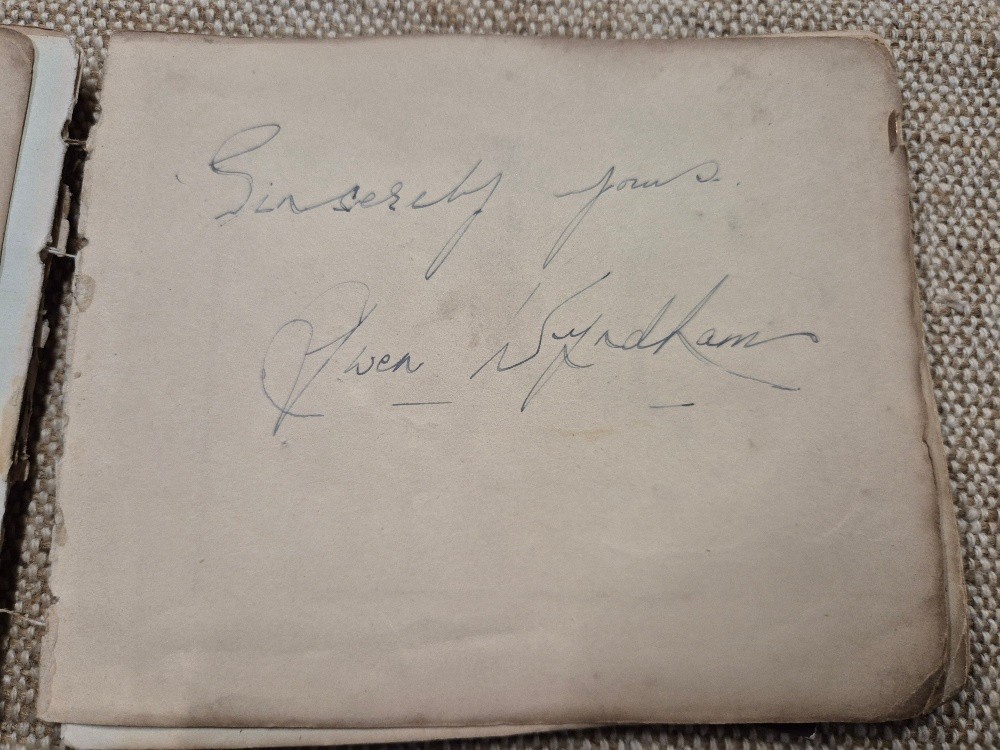 Sincerely yours.
Gwen Wyndham